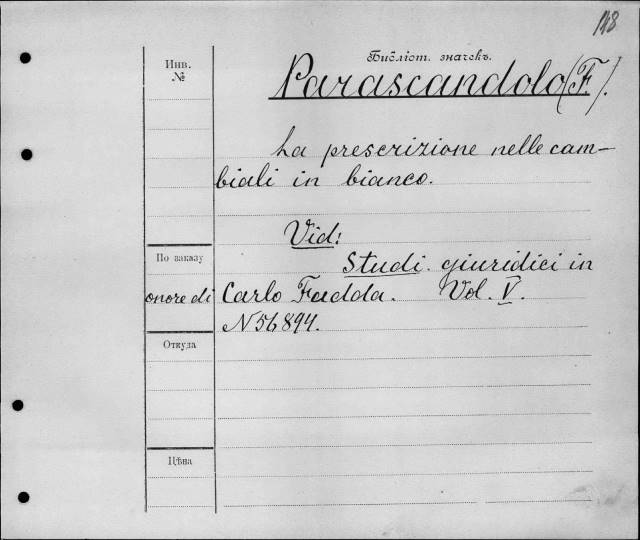 148
Инв.
№
Библіот. значекъ.
Parascandolo (F).
La prescrizione nelle cam-
biali in bianco.
Vid:
По заказу
Studi giuridici in
onore di Carlo Fadda. Vol. V.
N 56894.
Откуда
Цѣна